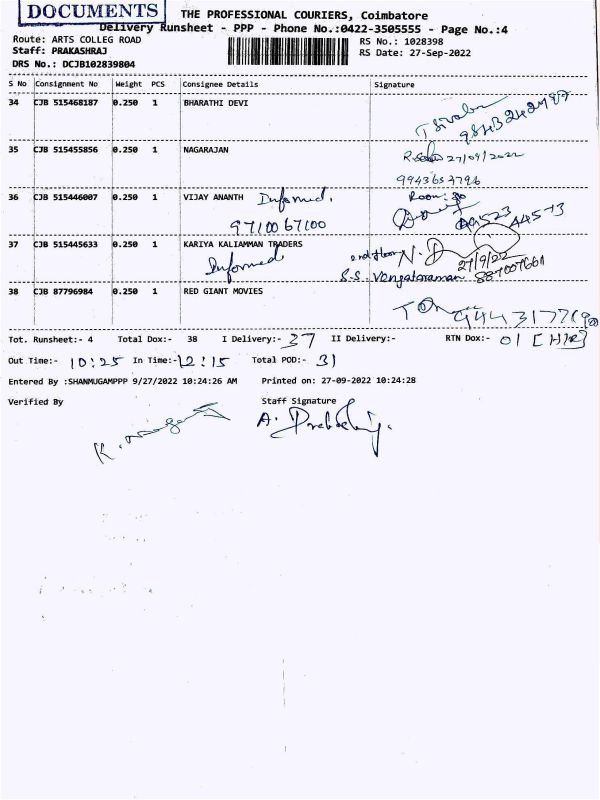 DOCUMENTS
THE PROFESSIONAL COURIERS, Coimbatore
Delivery Runsheet - PPP - Phone No.:0422-3505555 - Page No.:4
Route: ARTS COLLEG ROAD
RS No.: 1028398
Staff: PRAKASHRAJ
RS Date: 27-Sep-2022
DRS No.: DCJB102839804
S No Consignment No Weight PCS Consignee Details Signature
34 CJB 515468187 0.250 1 BHARATHI DEVI
35 CJB 515455856 0.250 1 NAGARAJAN
27/09/2022
9943653796
36 CJB 515446007 0.250 1 VIJAY ANANTH Informed.
9710067100
37 CJB 515445633 0.250 1 KARIYA KALIAMMAN TRADERS
Informed
2nd floor N.D
27/9/22
S.S. Vengataraman
38 CJB 87796984 0.250 1 RED GIANT MOVIES
Tot. Runsheet:- 4 Total Dox:- 38 I Delivery:- 37 II Delivery:- RTN Dox:- 01
Out Time:- 10:25 In Time:- 12:15 Total POD:- 31
Entered By :SHANMUGAMPPP 9/27/2022 10:24:26 AM Printed on: 27-09-2022 10:24:28
Verified By Staff Signature